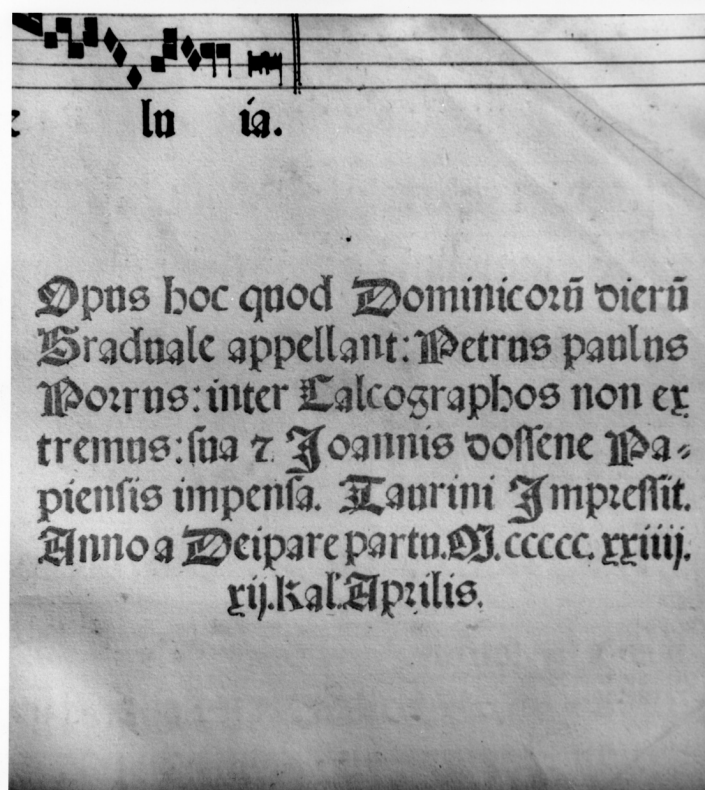 lu ia.
Opus hoc quod Dominicoꝛū dierū
Graduale appellant: Petrus paulus
Poꝛrus: inter Calcographos non ex
tremus: ſua ⁊ Joannis doſſene Pa⸗
pienſis impenſa. Taurini Impꝛeſſit.
Anno a Deipare partu. M. ccccc. xxiiij.
xij. kal'. Apꝛilis.